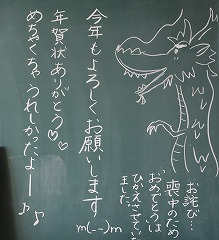 今年もよろしくお願いします
m(--)m
年賀状ありがとう♡♡
めちゃくちゃうれしかったよー♪♪
お詫び…
喪中のため
おめでとうは
ひかえさせていただき
ました。